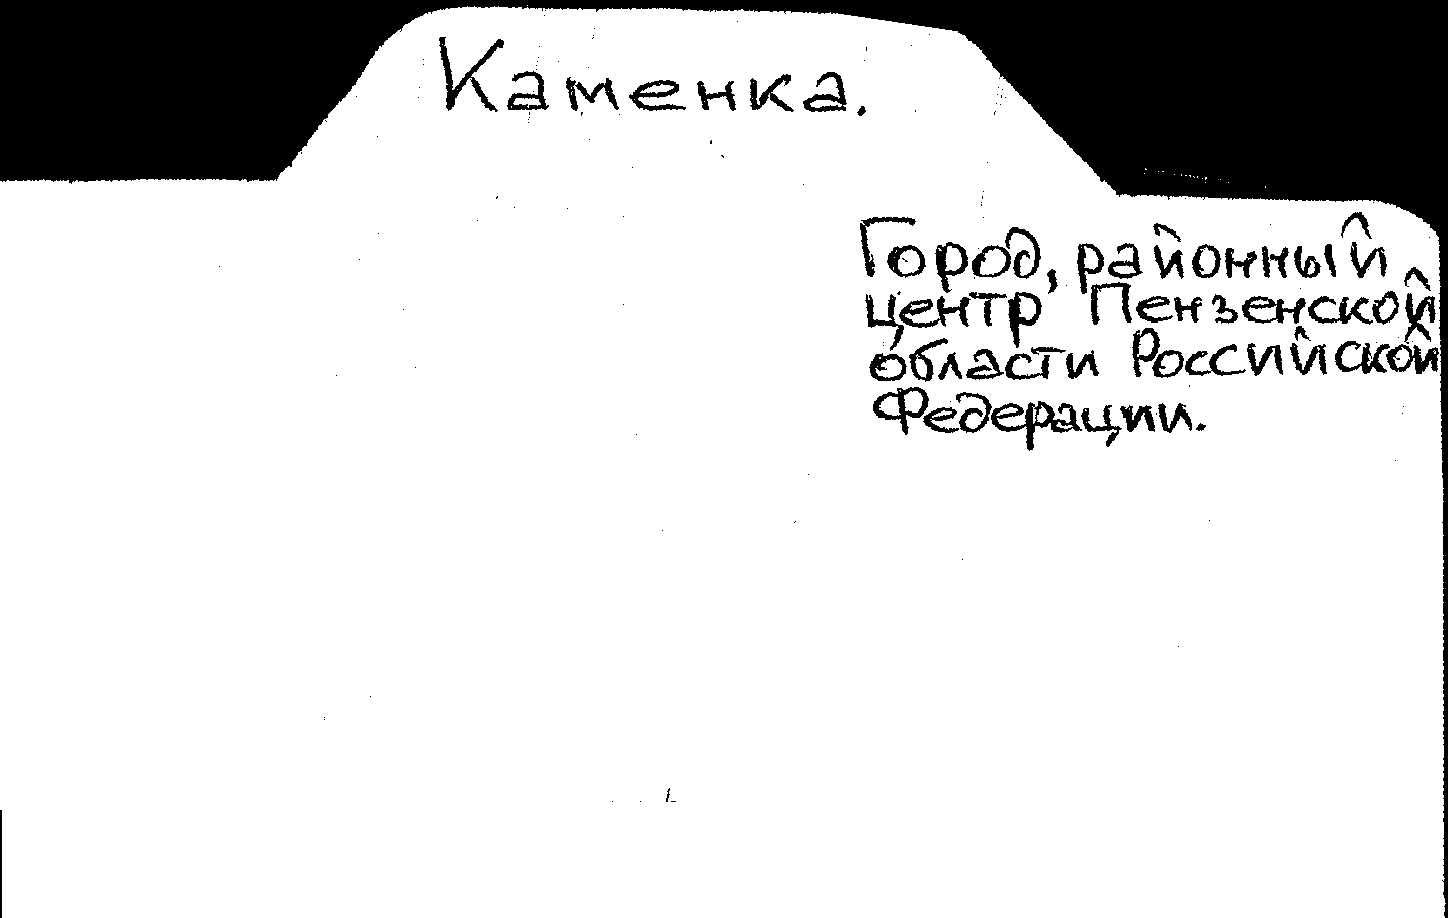 Каменка.
Город, районный
центр Пензенской
области Российской
Федерации.